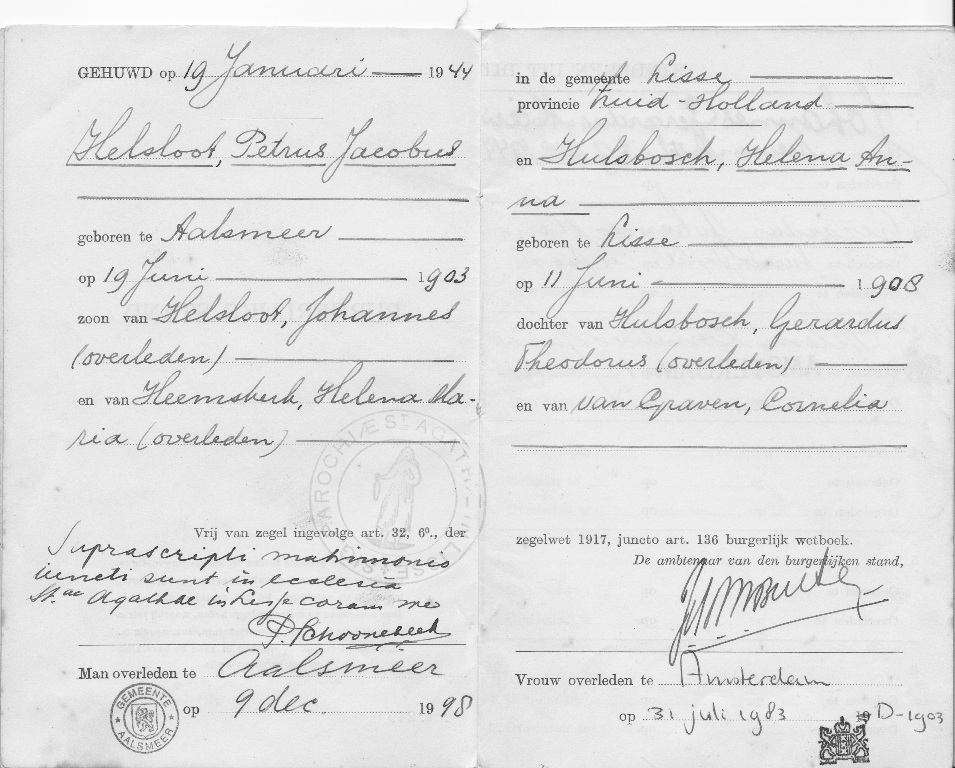 GEHUWD op 19 Januari 1944
Helsloot, Petrus Jacobus
geboren te Aalsmeer
op 19 Juni 1903
zoon van Helsloot, Johannes
(overleden)
en van Heemskerk, Helena Ma-
ria (overleden)
PAROCHIÆ ST AGATH
Vrij van zegel ingevolge art. 32, 6°., der
Suprascripti matrimonio
iuncti sunt in ecclesia
St.ae Agathae in Lisse coram me
P. Schoonebeek
Man overleden te Aalsmeer
op 9 dec. 1998
GEMEENTE AALSMEER
in de gemeente Lisse
provincie Zuid-Holland
en Hulsbosch, Helena An-
na
geboren te Lisse
op 11 Juni 1908
dochter van Hulsbosch, Gerardus
Theodorus (overleden)
en van van Graven, Cornelia
zegelwet 1917, juncto art. 136 burgerlijk wetboek.
De ambtenaar van den burgerlijken stand,
Vrouw overleden te Amsterdam
op 31 juli 1983 19 D-1903